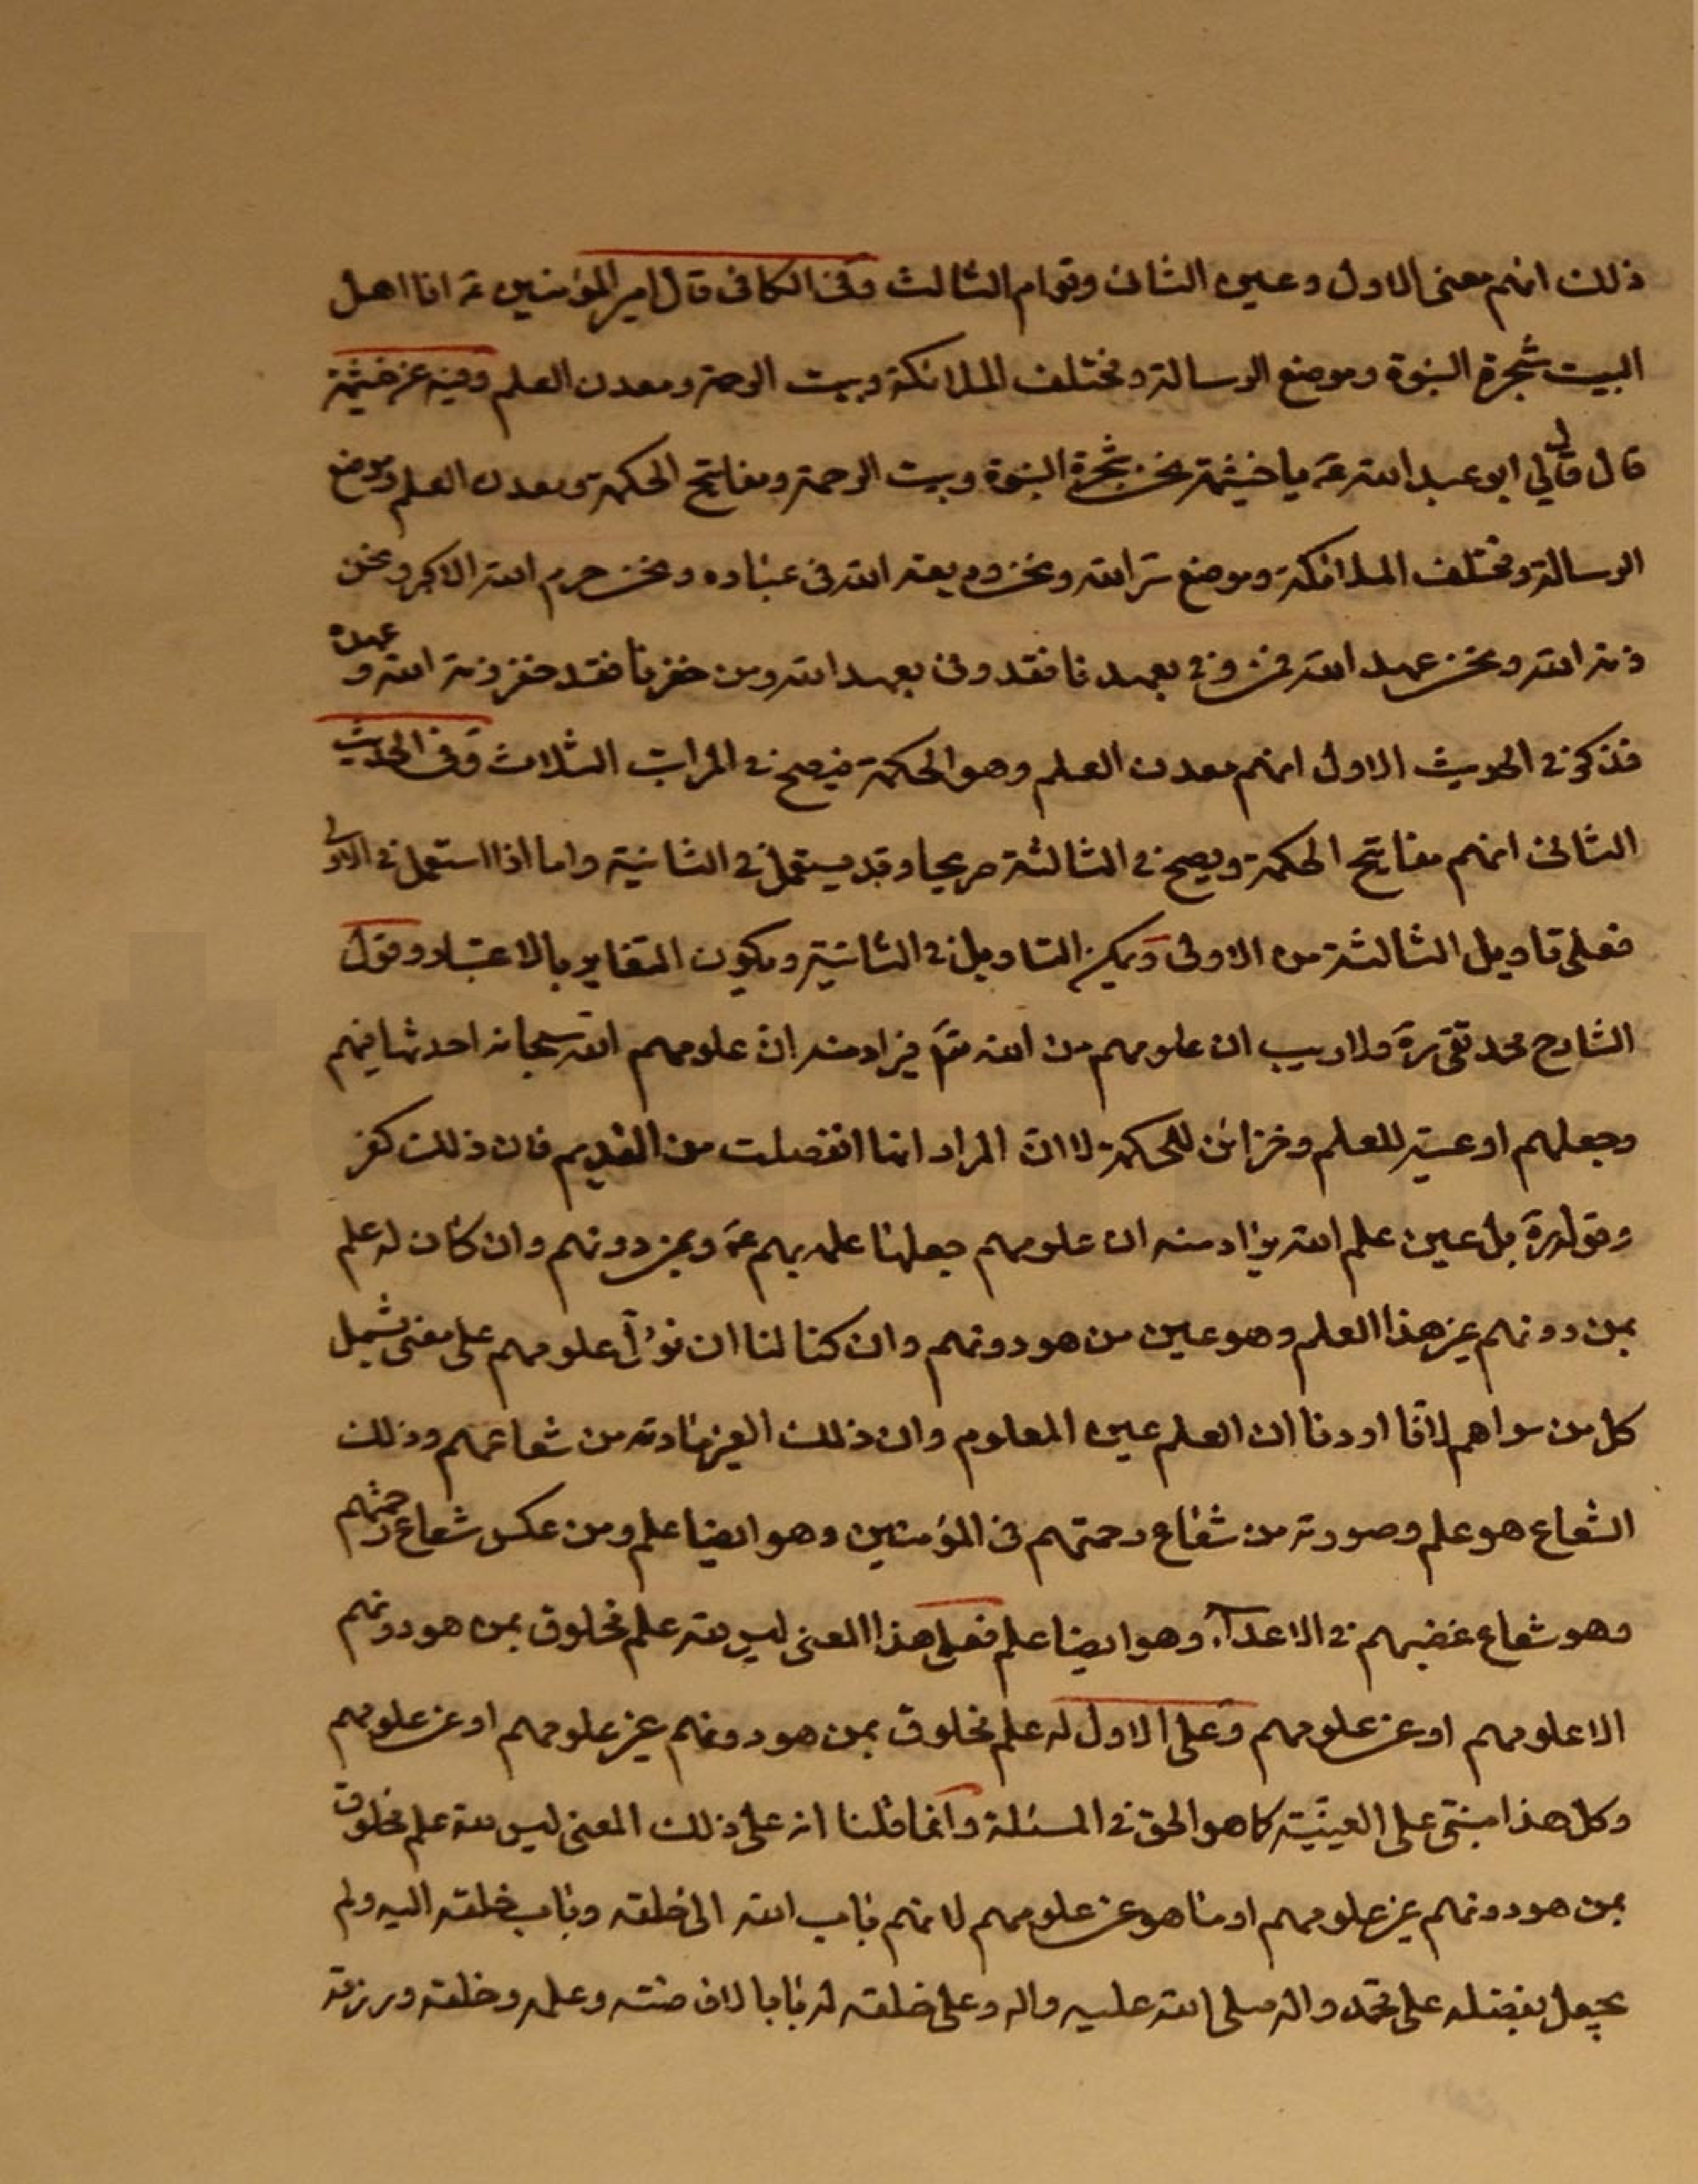 ذلك انهم معنى الاول وعين الثانى وقوام الثالث وفى الكافى قال امير المؤمنين ع انا اهل
البيت شجرة النبوة وموضع الرسالة ومختلف الملائكة وبيت الرحمة ومعدن العلم وفيه عن خيثمة
قال قال لي ابو عبد الله ع يا خيثمة نحن شجرة النبوة وبيت الرحمة ومفاتيح الحكمة ومعدن العلم وموضع
الرسالة ومختلف الملائكة وموضع سر الله ونحن وديعة الله فى عباده ونحن حرم الله الاكبر ونحن
ذمة الله ونحن عهد الله فمن وفى بعهدنا فقد وفى بعهد الله ومن خفرنا فقد خفر ذمة الله و عهده
فذكر في الحديث الاول انهم معدن العلم وهو الحكمة فيصح في المراتب الثلاث وفى الحديث
الثانى انهم مفاتيح الحكمة ويصح في الثالثة صريحا وقد يستعمل في الثانية واما اذا استعمل في الاولى
فعلى تاويل الثالثة من الاولى ويمكن التاويل في الثانية ويكون التغاير بالاعتبار وقول
الشارح محمد تقى ره ولا ريب ان علومهم من الله تعم فيراد منه ان علومهم الله سبحانه احدثها فيهم
وجعلهم اوعية للعلم وخزائن للحكمة لا ان المراد انها انفصلت من القديم فان ذلك كفر
وقوله ره بل عين علم الله يراد منه ان علومهم جعلها علمه بهم ع وبمن دونهم وان كان له علم
بمن دونهم غير هذا العلم وهو عين من هو دونهم وان كنا لنا ان نؤل علومهم على معنى يشمل
كل من سواهم لانا اردنا ان العلم عين المعلوم وان ذلك الغير مادته من شعاعهم وذلك
الشعاع هو علم وصورته من شعاع رحمتهم فى المؤمنين وهو ايضا علم ومن عكس شعاع رحمتهم
وهو شعاع غضبهم في الاعداء وهو ايضا علم فعلى هذا المعنى ليس لله علم مخلوق بمن هو دونهم
الا علومهم او عن علومهم وعلى الاول له علم مخلوق بمن هو دونهم غير علومهم او عن علومهم
وكل هذا مبنى على العينية كما هو الحق في المسئلة وانما قلنا انه على ذلك المعنى ليس لله علم مخلوق
بمن هو دونهم غير علومهم او ما هو عن علومهم لانهم باب الله الى خلقه وباب خلقه اليه ولم
يجعل بفضله على محمد واله صلى الله عليه واله وعلى خلقه له بابا لافاضته وعلمه وخلقه ورزقه